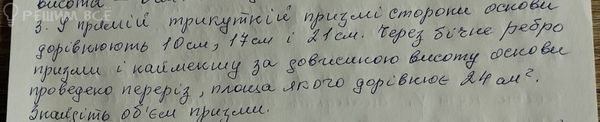 висота -
РЕШИМ ВСЕ
3. У прямій трикутній призмі сторони основи
дорівнюють 10см, 17см і 21см. Через бічне ребро
призми і найменшу за довжиною висоту основи
проведено переріз, площа якого дорівнює 24 см².
Знайдіть об'єм призми.